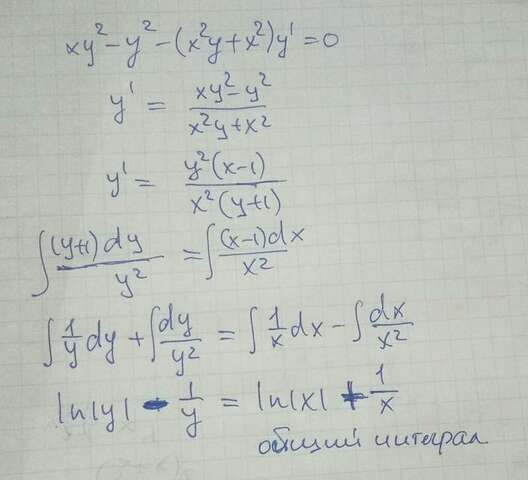 xy² - y² - (x²y + x²)y' = 0
y' = (xy² - y²)/(x²y + x²)
y' = y²(x-1)/(x²(y+1))
∫ (y+1)dy/y² = ∫ (x-1)dx/x²
∫ 1/y dy + ∫ dy/y² = ∫ 1/x dx - ∫ dx/x²
ln|y| - 1/y = ln|x| + 1/x
общий интеграл